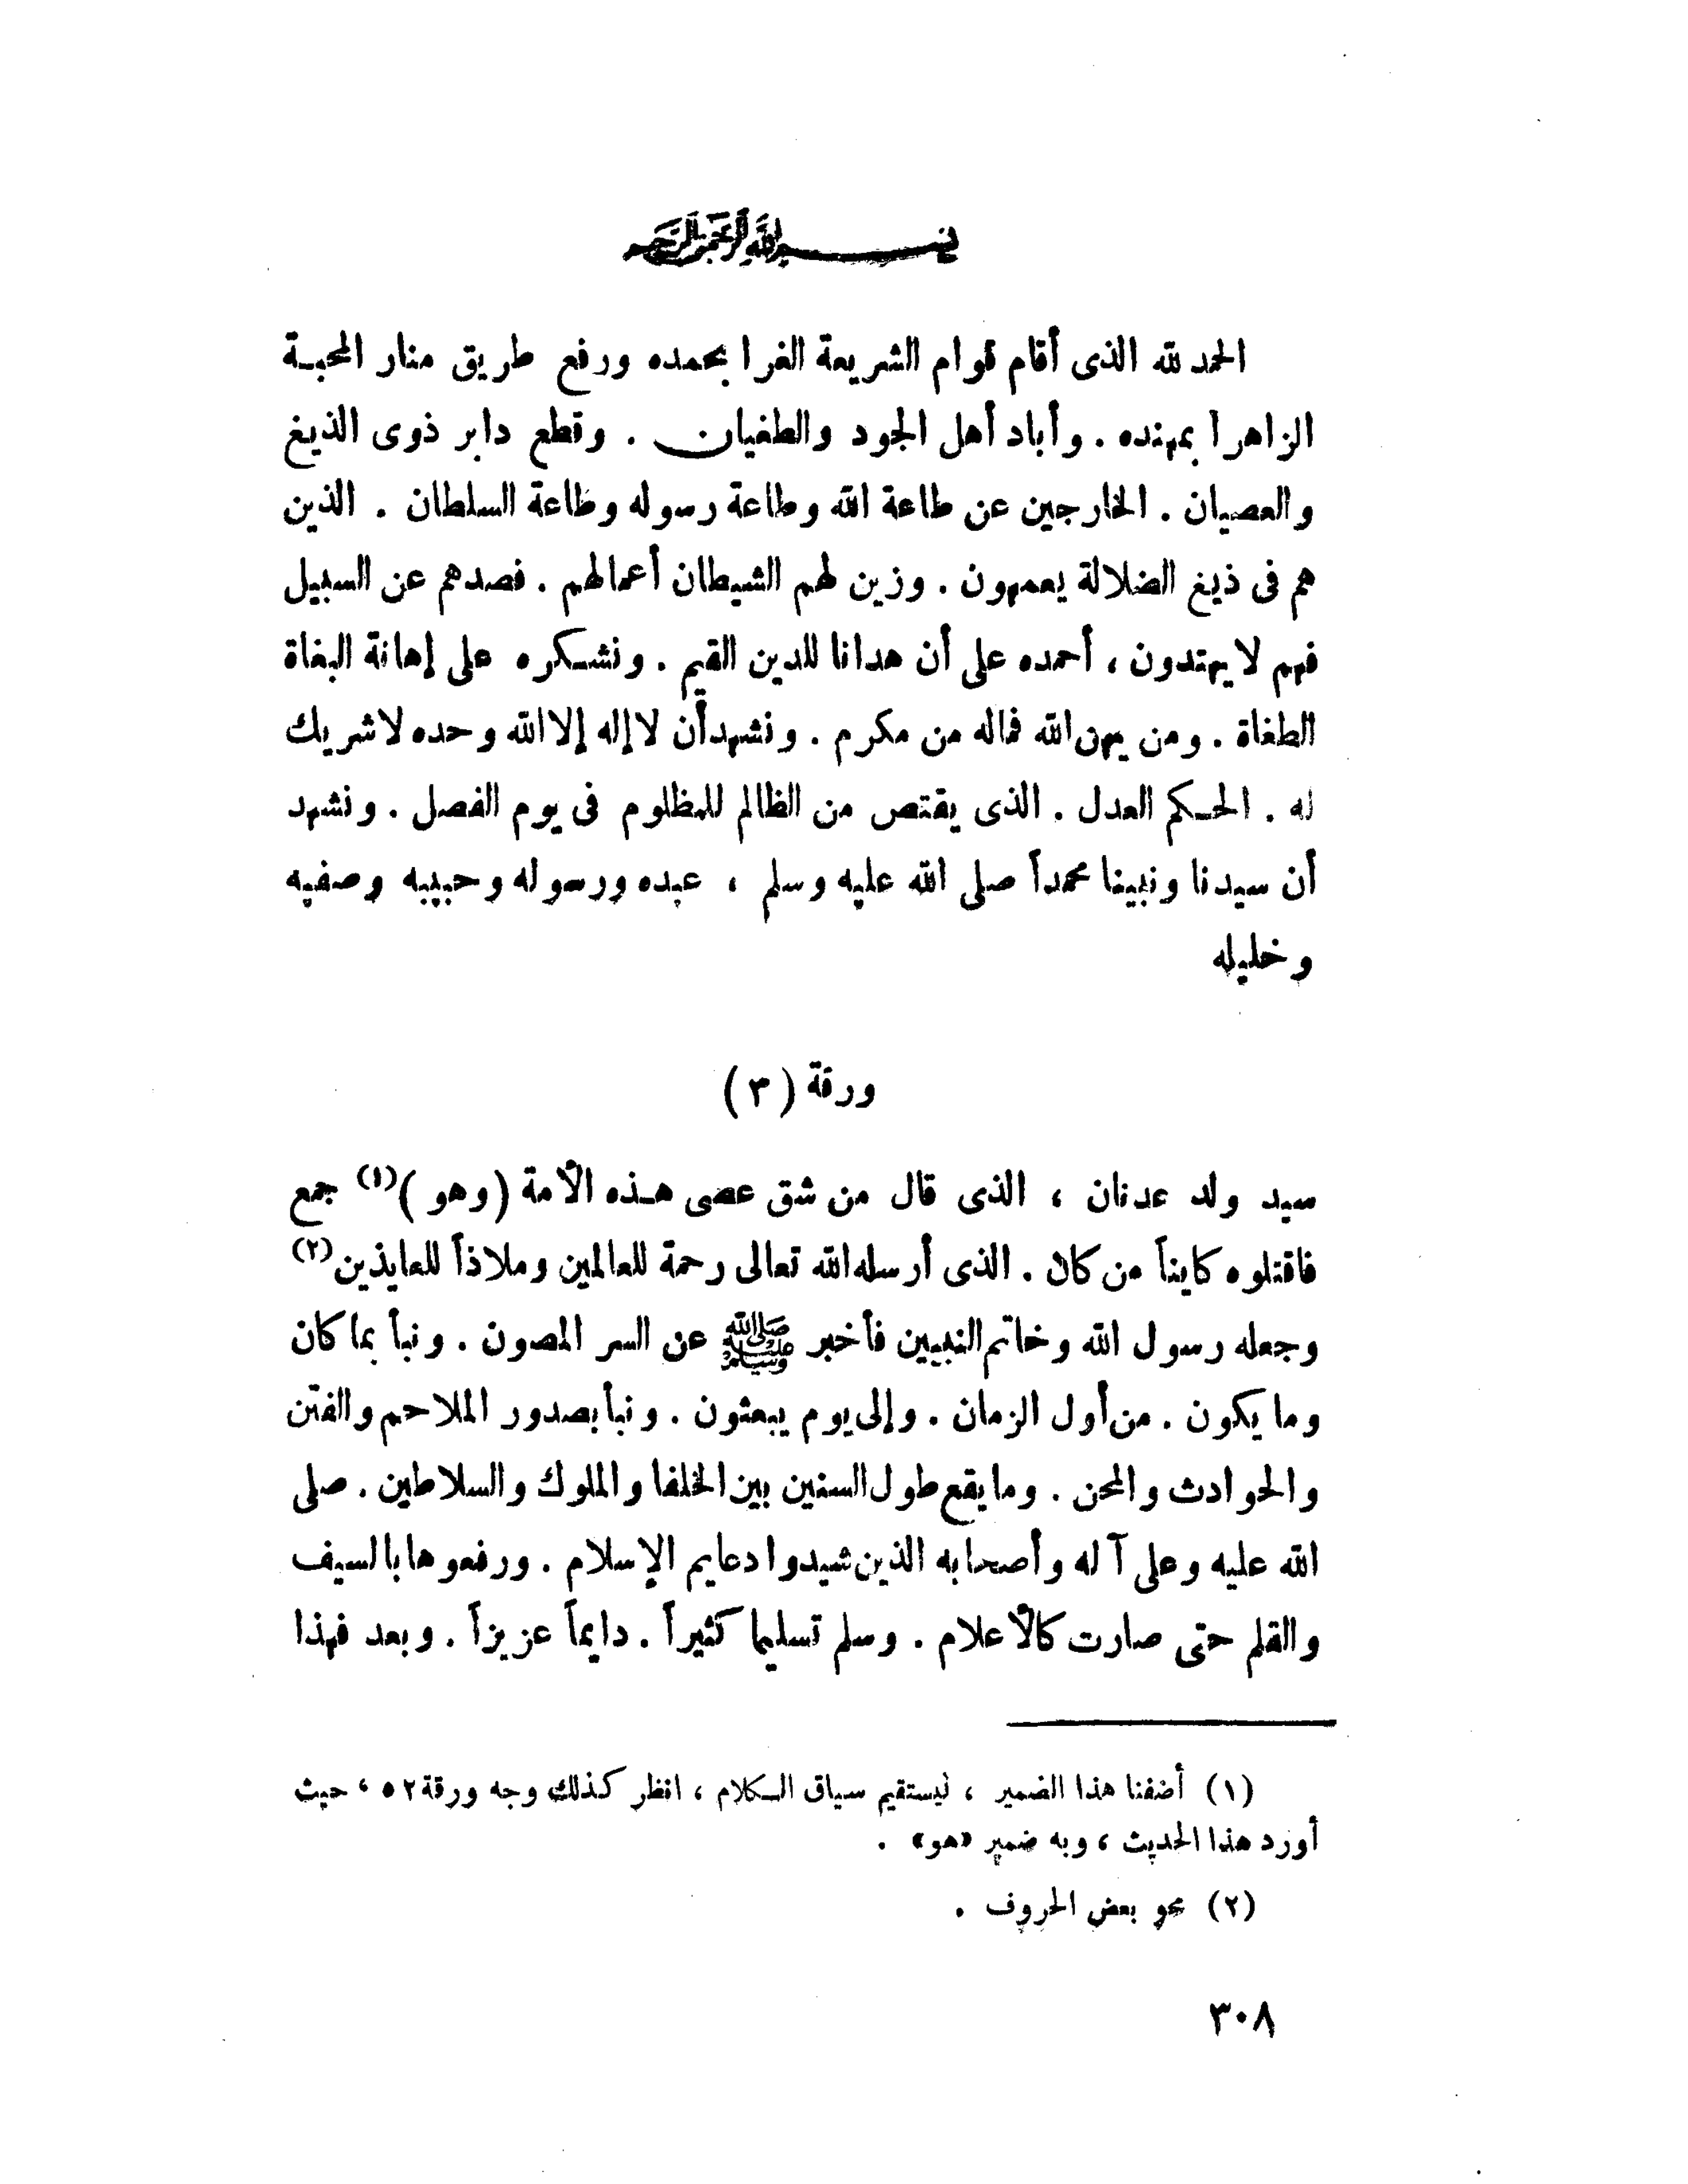 بسم الله الرحمن الرحيم
الحمد لله الذى أقام قوام الشريعة الغرا بحمده ورفع طريق منار المحبة
الزاهرا بمهنده . وأباد أهل الجود والطغيان . وقطع دابر ذوى الذيغ
والعصيان . الخارجين عن طاعة الله وطاعة رسوله وطاعة السلطان . الذين
هم فى ذيغ الضلالة يعمهون . وزين لهم الشيطان أعمالهم . فصدهم عن السبيل
فهم لا يهتدون ، أحمده على أن هدانا للدين القيم . ونشكره على إهانة البغاة
الطغاة . ومن يهن الله فماله من مكرم . ونشهد أن لا إله إلا الله وحده لا شريك
له . الحكم العدل . الذى يقتص من الظالم للمظلوم فى يوم الفصل . ونشهد
أن سيدنا ونبينا محمداً صلى الله عليه وسلم ، عبده ورسوله وحبيبه وصفيه
وخليله
ورقة (٣)
سيد ولد عدنان ، الذى قال من شق عصى هذه الأمة (وهو)(١) جمع
فاقتلوه كايناً من كان . الذى أرسله الله تعالى رحمة للعالمين وملاذاً للعايذين(٢)
وجعله رسول الله وخاتم النبيين فأخبر ﷺ عن السر المصون . ونبأ بما كان
وما يكون . من أول الزمان . وإلى يوم يبعثون . ونبأ بصدور الملاحم والفتن
والحوادث والمحن . وما يقع طول السنين بين الخلفا والملوك والسلاطين . صلى
الله عليه وعلى آله وأصحابه الذين شيدوا دعايم الإسلام . ورفعوها بالسيف
والقلم حتى صارت كالأعلام . وسلم تسليما كثيراً . دايماً عزيزاً . وبعد فهذا
(١) أضفنا هذا الضمير ، ليستقيم سياق الكلام ، انظر كذلك وجه ورقة ٥٢ ، حيث
أورد هذا الحديث ، وبه ضمير «هو» .
(٢) محو بعض الحروف .
٣٠٨